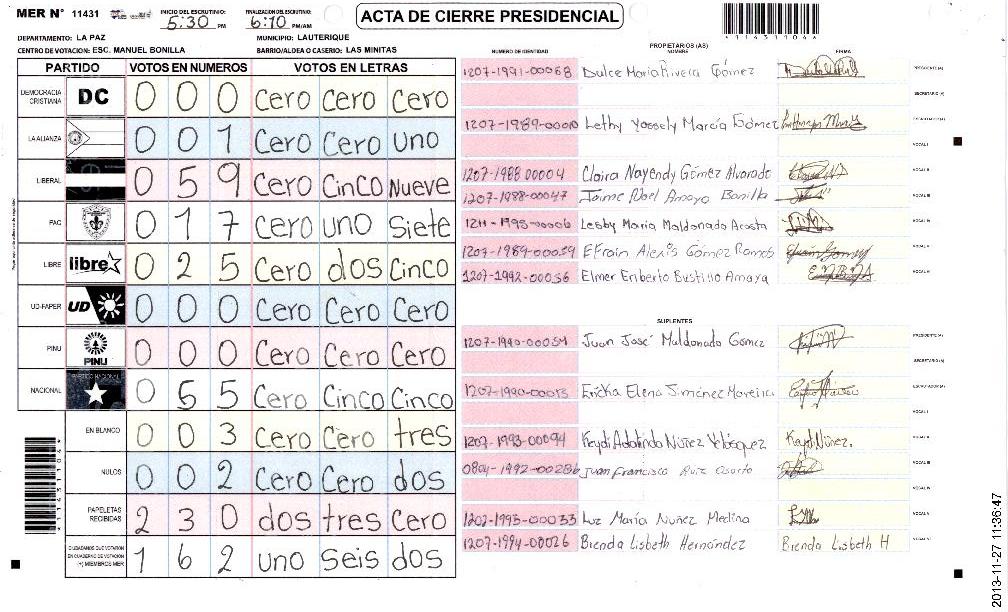 MER N° 11431
INICIO DEL ESCRUTINIO: 5:30 PM
FINALIZACION DEL ESCRUTINIO: 6:10 PM/AM
ACTA DE CIERRE PRESIDENCIAL
DEPARTAMENTO: LA PAZ
MUNICIPIO: LAUTERIQUE
CENTRO DE VOTACION: ESC. MANUEL BONILLA
BARRIO/ALDEA O CASERIO: LAS MINITAS
PARTIDO VOTOS EN NUMEROS VOTOS EN LETRAS
DEMOCRACIA CRISTIANA DC 0 0 0 Cero Cero Cero
LA ALIANZA 0 0 1 Cero Cero uno
LIBERAL 0 5 9 Cero Cinco Nueve
PAC 0 1 7 Cero uno Siete
LIBRE libre 0 2 5 Cero dos Cinco
UD-FAPER UD 0 0 0 Cero Cero Cero
PINU PINU 0 0 0 Cero Cero Cero
NACIONAL PARTIDO NACIONAL 0 5 5 Cero Cinco Cinco
EN BLANCO 0 0 3 Cero Cero tres
NULOS 0 0 2 Cero Cero dos
PAPELETAS RECIBIDAS 2 3 0 dos tres Cero
CIUDADANOS QUE VOTARON EN CUADERNO DE VOTACION (+) MIEMBROS MER 1 6 2 uno seis dos
PROPIETARIOS (AS)
NUMERO DE IDENTIDAD NOMBRE FIRMA
1207-1991-00068 Dulce Maria Rivera Gómez PRESIDENTE(A)
SECRETARIO (A)
1207-1989-00010 Lethy Yossely Marcía Gómez ESCRUTADOR (A)
VOCAL I
1207-1988 00004 Claira Nayendy Gómez Alvarado VOCAL II
1207-1988-00047 Jaime Noel Amaya Bonilla VOCAL III
1211-1995-00006 Lesby Maria Maldonado Acosta VOCAL IV
1207-1989-00039 Efrain Alexis Gómez Ramos VOCAL V
1207-1992-00036 Elmer Enberto Bustillo Amaya VOCAL VI
SUPLENTES
1207-1990-00054 Juan José Maldonado Gomez PRESIDENTE(A)
SECRETARIO (A)
1207-1990-00013 Ericka Elena Jiménez Moreira ESCRUTADOR (A)
VOCAL I
1207-1993-00094 Keydi Adalinda Nuñez Velásquez Keydi Núñez. VOCAL II
0801-1992-00286 Juan Francisco Ruiz Osorto VOCAL III
VOCAL IV
1207-1993-00033 Luz María Nuñez Medina VOCAL V
1207-1994-00026 Brenda Lisbeth Hernández Brenda Lisbeth H VOCAL VI
2013-11-27 11:36:47